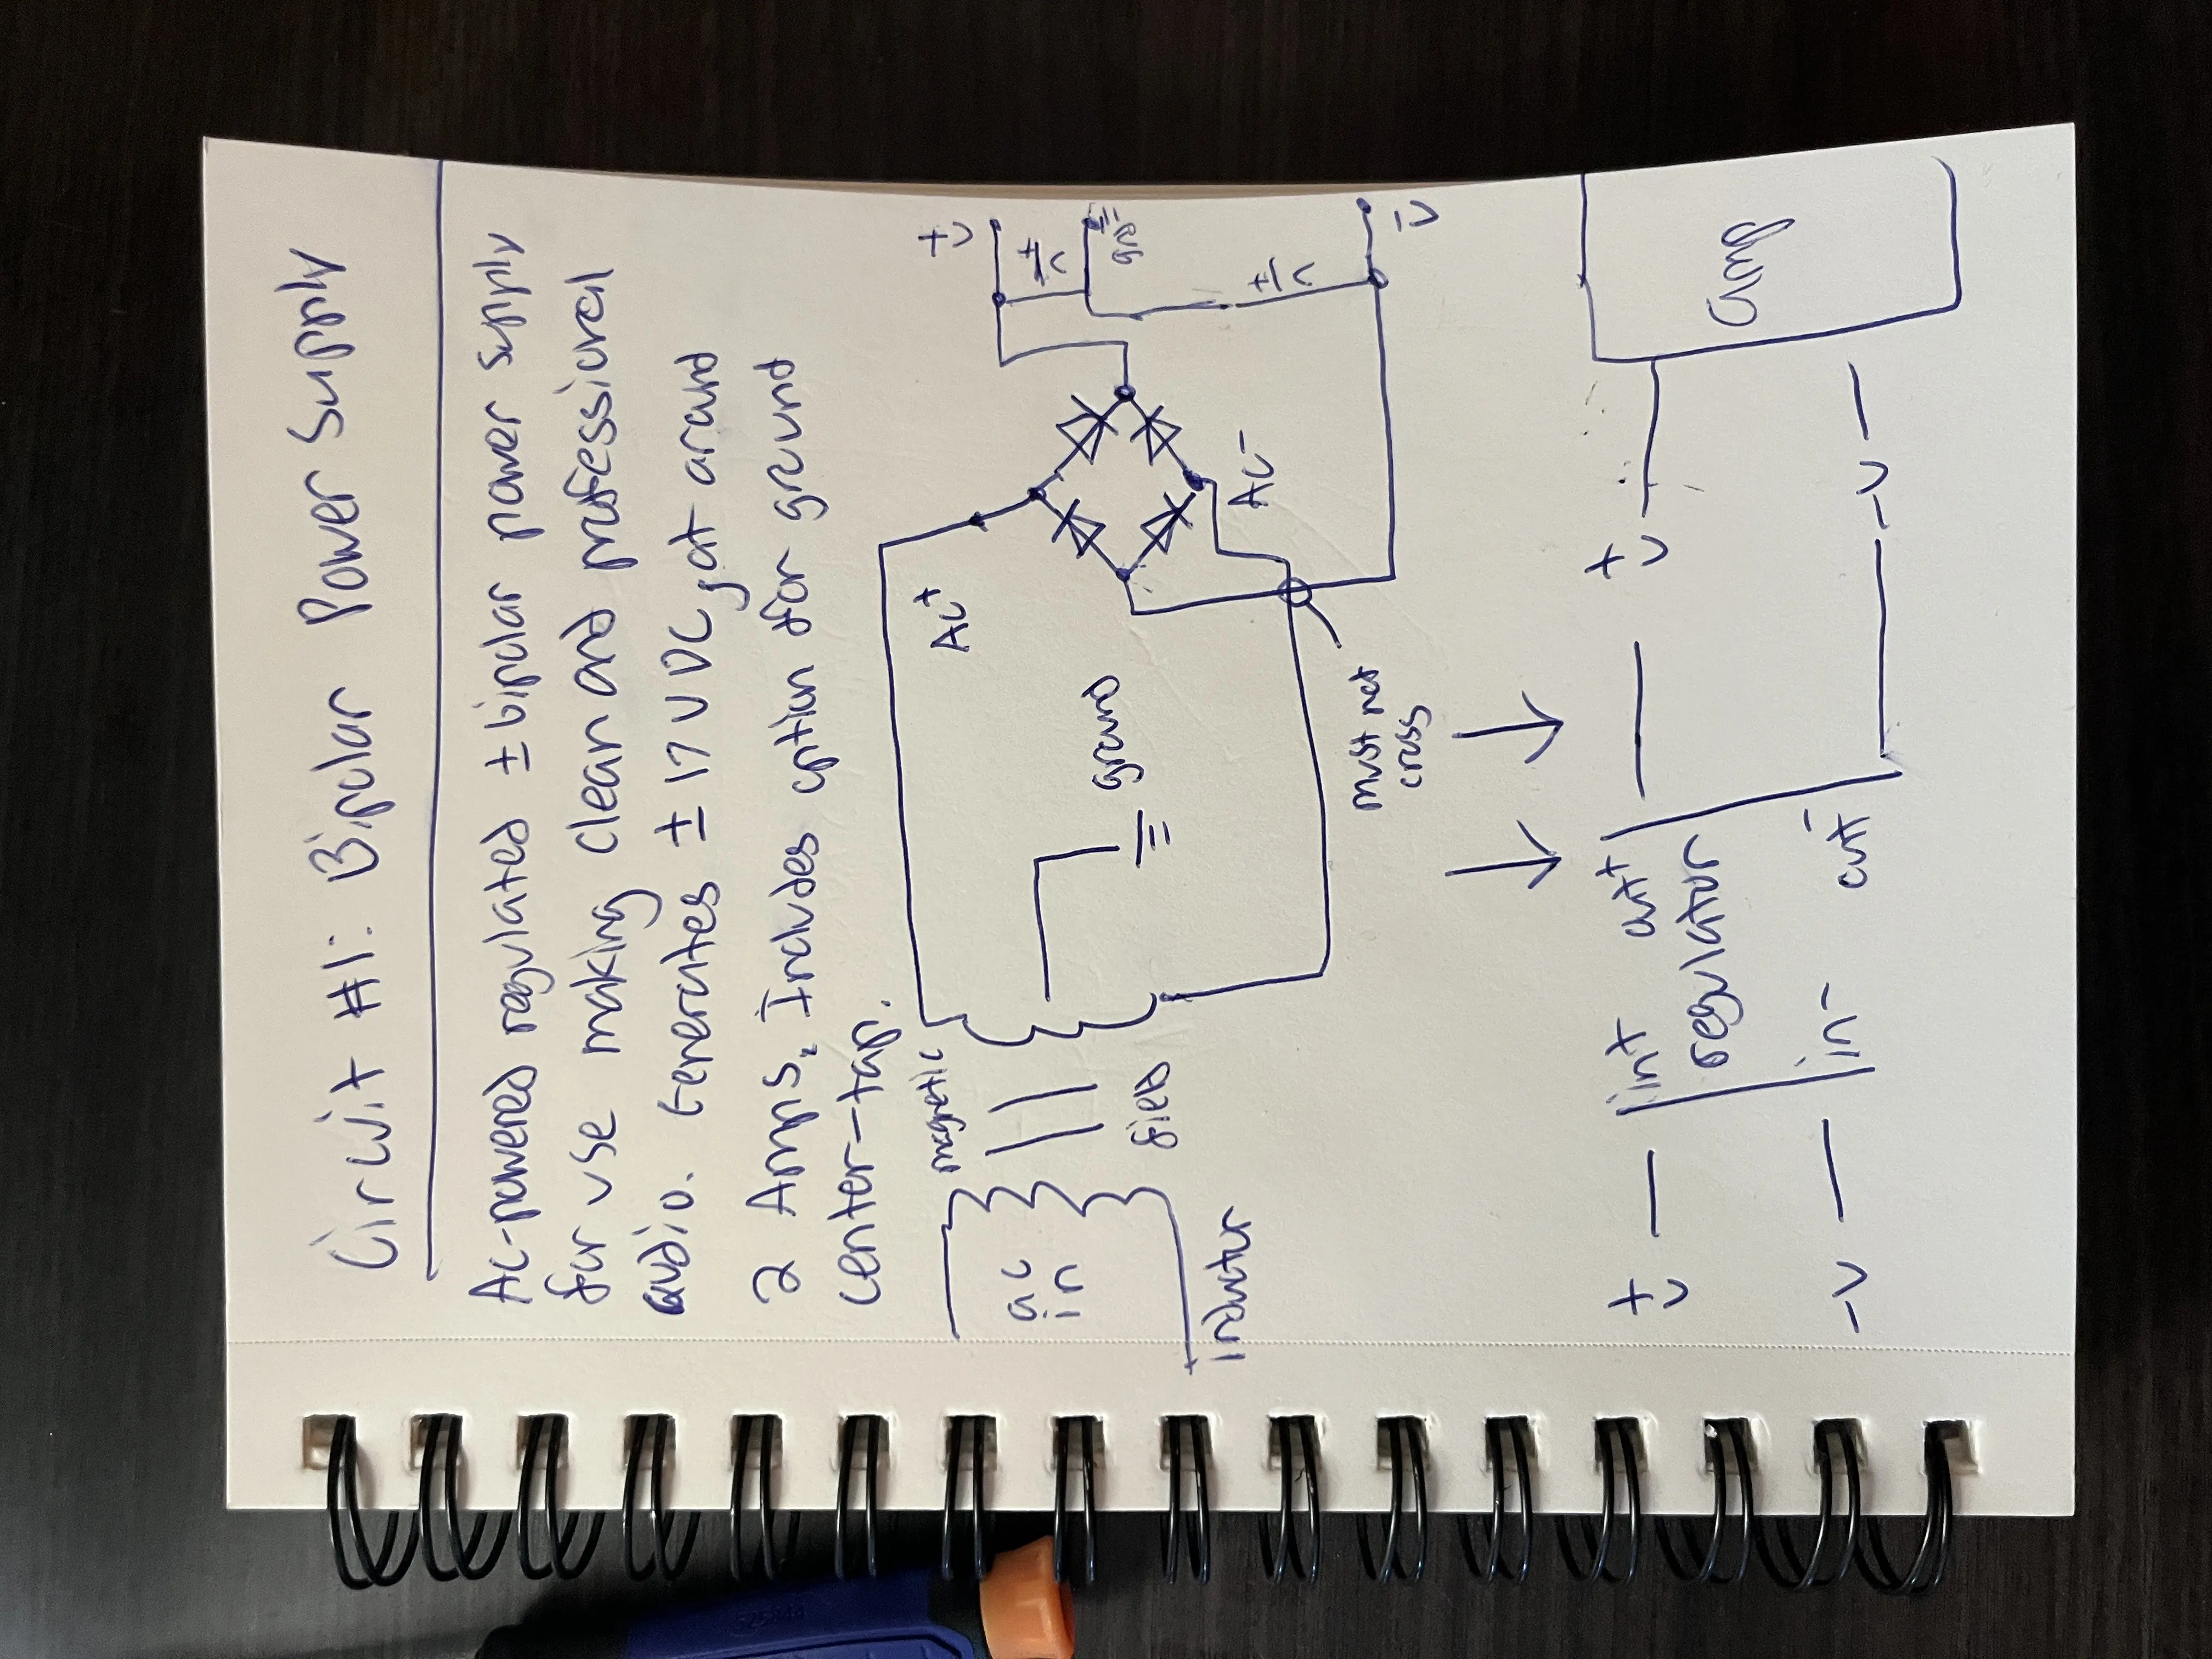 Circuit #1: Bipolar Power Supply
AC-powered regulated ± bipolar power supply
for use making clean and professional
audio. Generates ± 17 VDC, at around
2 Amps. Includes option for ground
center-tap.
magnetic
field
ac
in
inductor
AC+
ground
AC-
must not
cross
+V
gnd
-V
+V
-V
in+
out+
regulator
in-
out-
+V
-V
amp